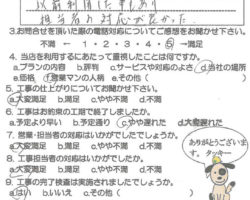 以前利用した事もあり
担当者の対応が良かった。
3.お問合せを頂いた際の電話対応についてご感想をお聞かせ下さい。
不満 ← 1・2・3・4・5 →満足
4. 当店を利用するにあたって重視したことは何ですか。
a.プランの内容 b.評判 c.サービスや対応のよさ d.当社の場所
e.価格 f.営業マンの人柄 gその他(
5.工事の仕上がりについてお聞かせ下さい。
a.大変満足 b.満足 c.やや不満 d.不満
6.工事はお約束の工期で終了しましたか。
a.予定より早い b.予定通り c.やや遅れた d.大変遅れた
7.営業・担当者の対応はいかがでしたでしょうか。
a.大変満足 b.満足 c.やや不満 d.不満
8.工事担当者の対応はいかがでしたか。
a.大変満足 b.満足 c.やや不満 d.不満
9.工事の完了検査は実施されましたでしょうか。
a.はい b.いいえ c.その他(
ありがとうございま
す、タッキー